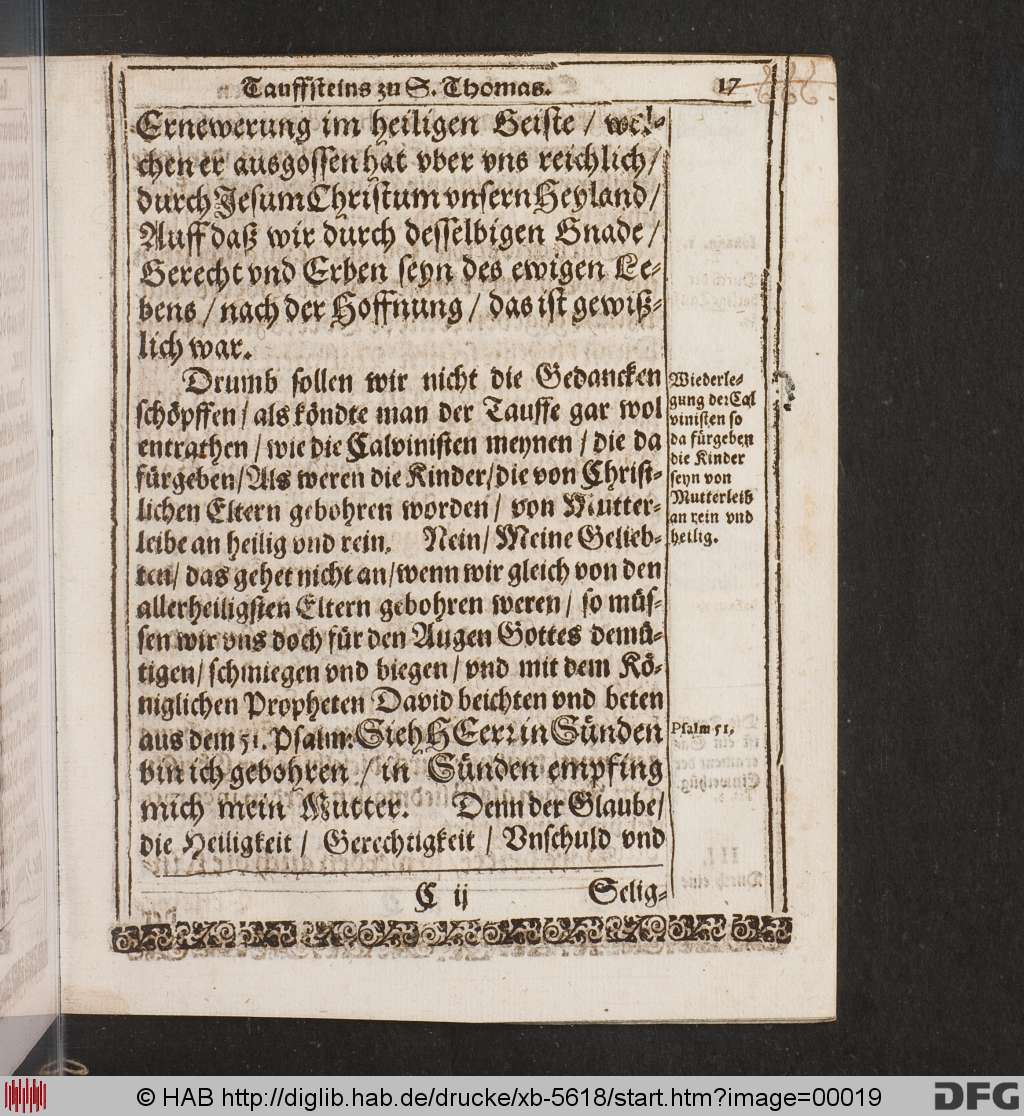 Tauffsteins zu S. Thomas. 17
Ernewerung im heiligen Geiste / wel-
chen er ausgossen hat vber vns reichlich /
durch Jesum Christum vnsern Heyland /
Auff daß wir durch desselbigen Gnade /
Gerecht vnd Erben seyn des ewigen Le-
bens / nach der Hoffnung / das ist gewiß-
lich war.
Drumb sollen wir nicht die Gedancken
schöpffen / als köndte man der Tauffe gar wol
entrathen / wie die Calvinisten meynen / die da
fürgeben / Als weren die Kinder / die von Christ-
lichen Eltern gebohren worden / von Mutter-
leibe an heilig vnd rein. Nein / Meine Gelieb-
ten / das gehet nicht an / wenn wir gleich von den
allerheiligsten Eltern gebohren weren / so müs-
sen wir vns doch für den Augen Gottes demü-
tigen / schmiegen vnd biegen / vnd mit dem Kö-
niglichen Propheten David beichten vnd beten
aus dem 51. Psalm: Sieh HErr in Sünden
bin ich gebohren / in Sünden empfing
mich mein Mutter. Denn der Glaube /
die Heiligkeit / Gerechtigkeit / Vnschuld vnd
C ij Selig-
Wiederle-
gung der Cal
vinisten so
da fürgeben
die Kinder
seyn von
Mutterleib
an rein vnd
heilig.
Psalm 51.
© HAB http://diglib.hab.de/drucke/xb-5618/start.htm?image=00019
DFG